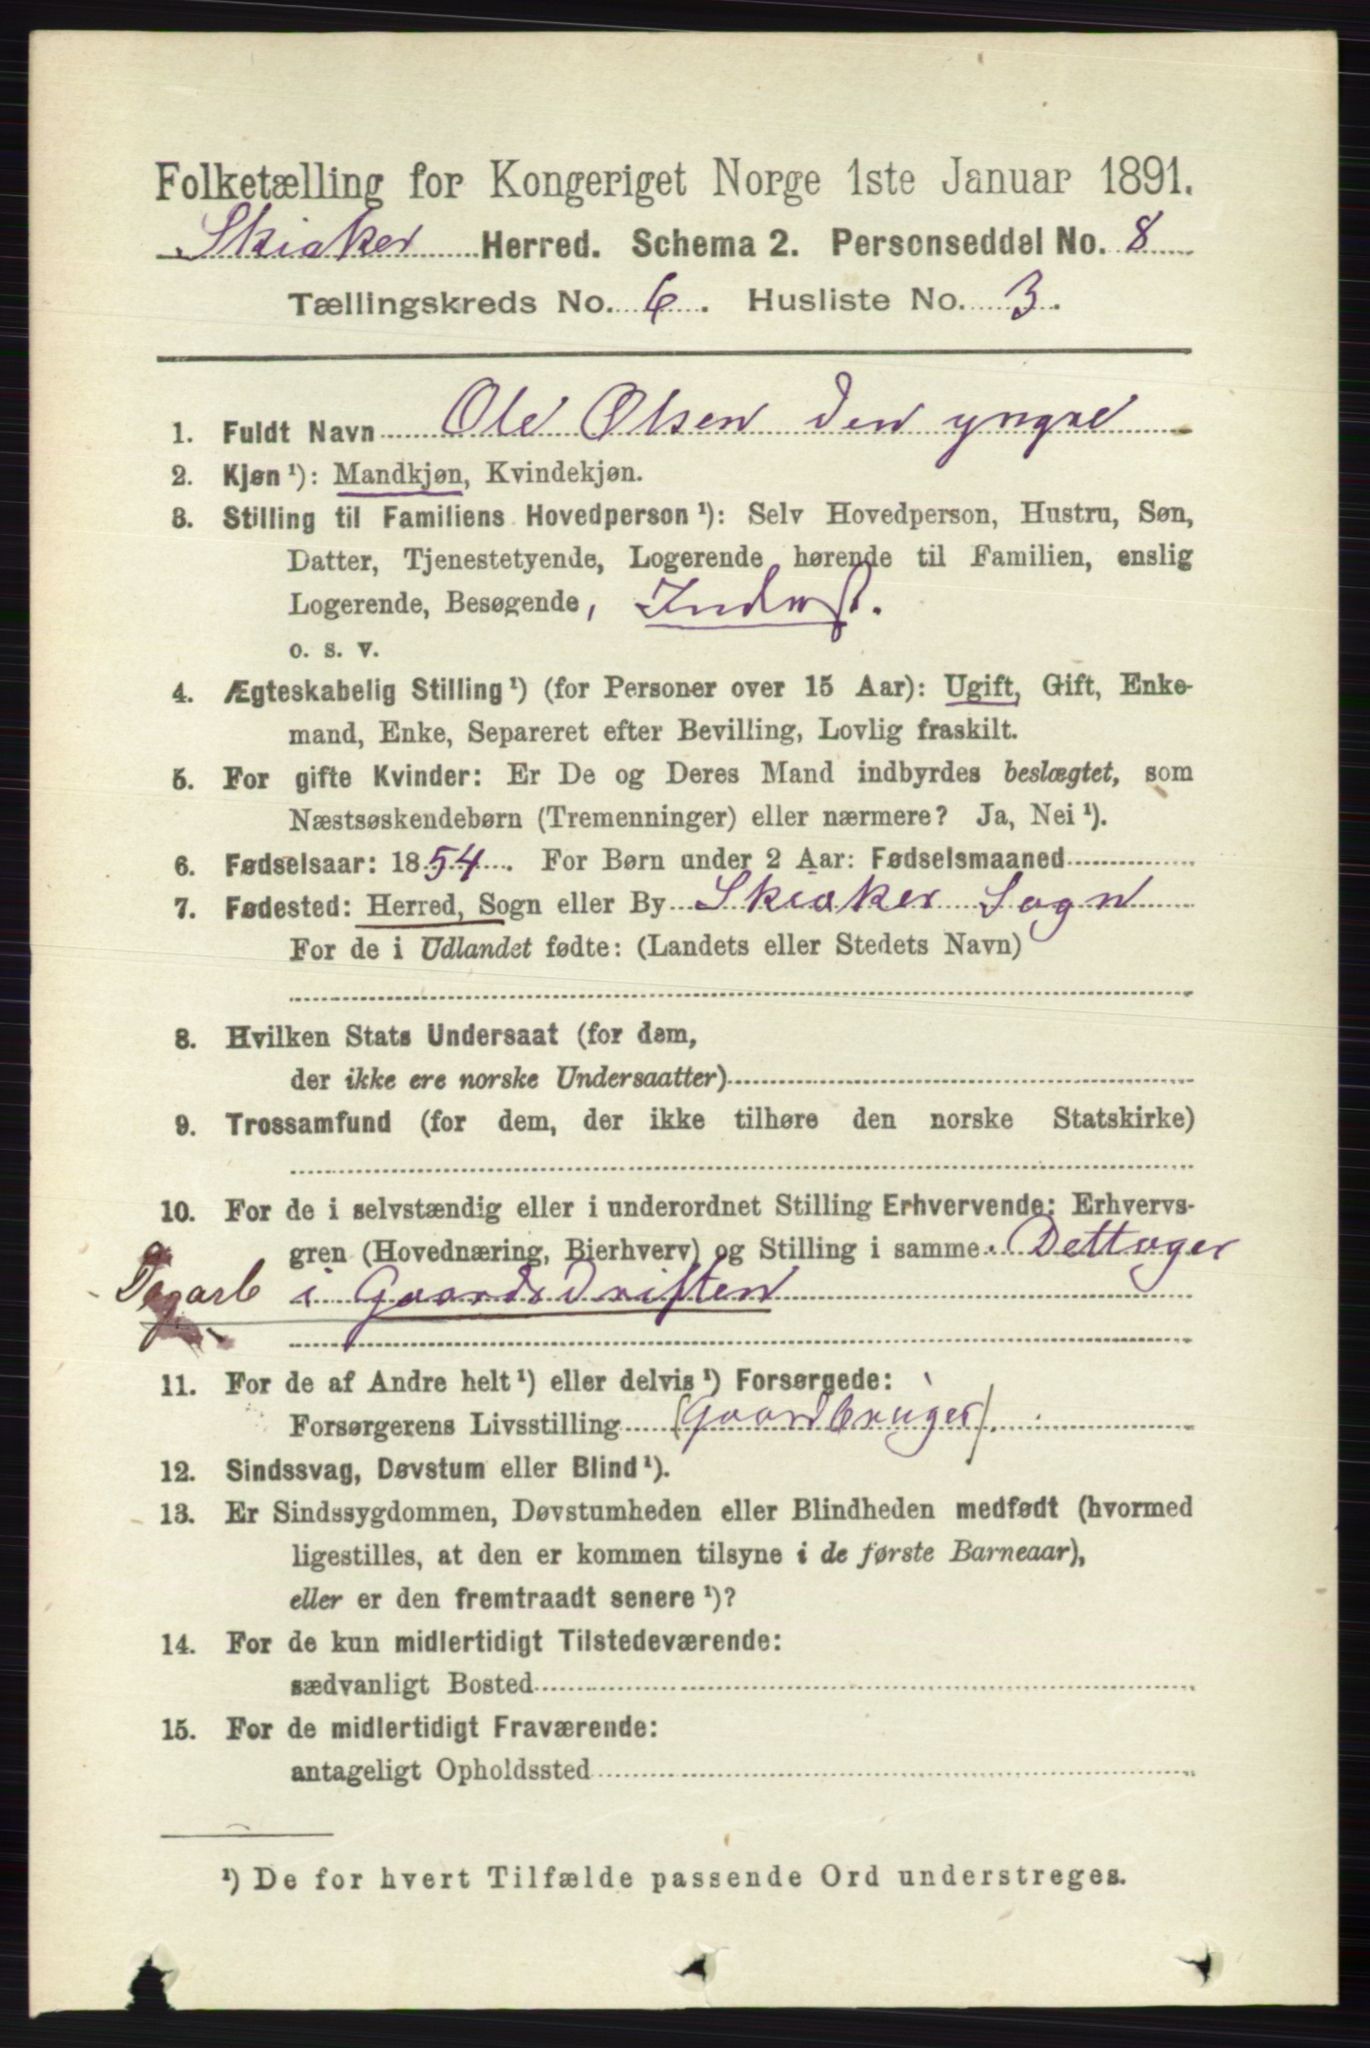 Folketælling for Kongeriget Norge 1ste Januar 1891.
Skiaker Herred. Schema 2. Personseddel No. 8
Tællingskreds No. 6. Husliste No. 3.
1. Fuldt Navn Ole Olsen den yngre
2. Kjøn ¹): Mandkjøn, Kvindekjøn.
3. Stilling til Familiens Hovedperson ¹): Selv Hovedperson, Hustru, Søn,
Datter, Tjenestetyende, Logerende hørende til Familien, enslig
Logerende, Besøgende,
o. s. v.
4. Ægteskabelig Stilling ¹) (for Personer over 15 Aar): Ugift, Gift, Enke-
mand, Enke, Separeret efter Bevilling, Lovlig fraskilt.
5. For gifte Kvinder: Er De og Deres Mand indbyrdes beslægtet, som
Næstsøskendebørn (Tremenninger) eller nærmere? Ja, Nei ¹).
6. Fødselsaar: 1854. For Børn under 2 Aar: Fødselsmaaned
7. Fødested: Herred, Sogn eller By Skiaker Sogn
For de i Udlandet fødte: (Landets eller Stedets Navn)
8. Hvilken Stats Undersaat (for dem,
der ikke ere norske Undersaatter)
9. Trossamfund (for dem, der ikke tilhøre den norske Statskirke)
10. For de i selvstændig eller i underordnet Stilling Erhvervende: Erhvervs-
gren (Hovednæring, Bierhverv) og Stilling i samme. Dettager
Dagarb i Gaardsdriften
11. For de af Andre helt ¹) eller delvis ¹) Forsørgede:
Forsørgerens Livsstilling (Gaardbruger).
12. Sindssvag, Døvstum eller Blind ¹).
13. Er Sindssygdommen, Døvstumheden eller Blindheden medfødt (hvormed
ligestilles, at den er kommen tilsyne i de første Barneaar),
eller er den fremtraadt senere ¹)?
14. For de kun midlertidigt Tilstedeværende:
sædvanligt Bosted
15. For de midlertidigt Fraværende:
antageligt Opholdssted
¹) De for hvert Tilfælde passende Ord understreges.